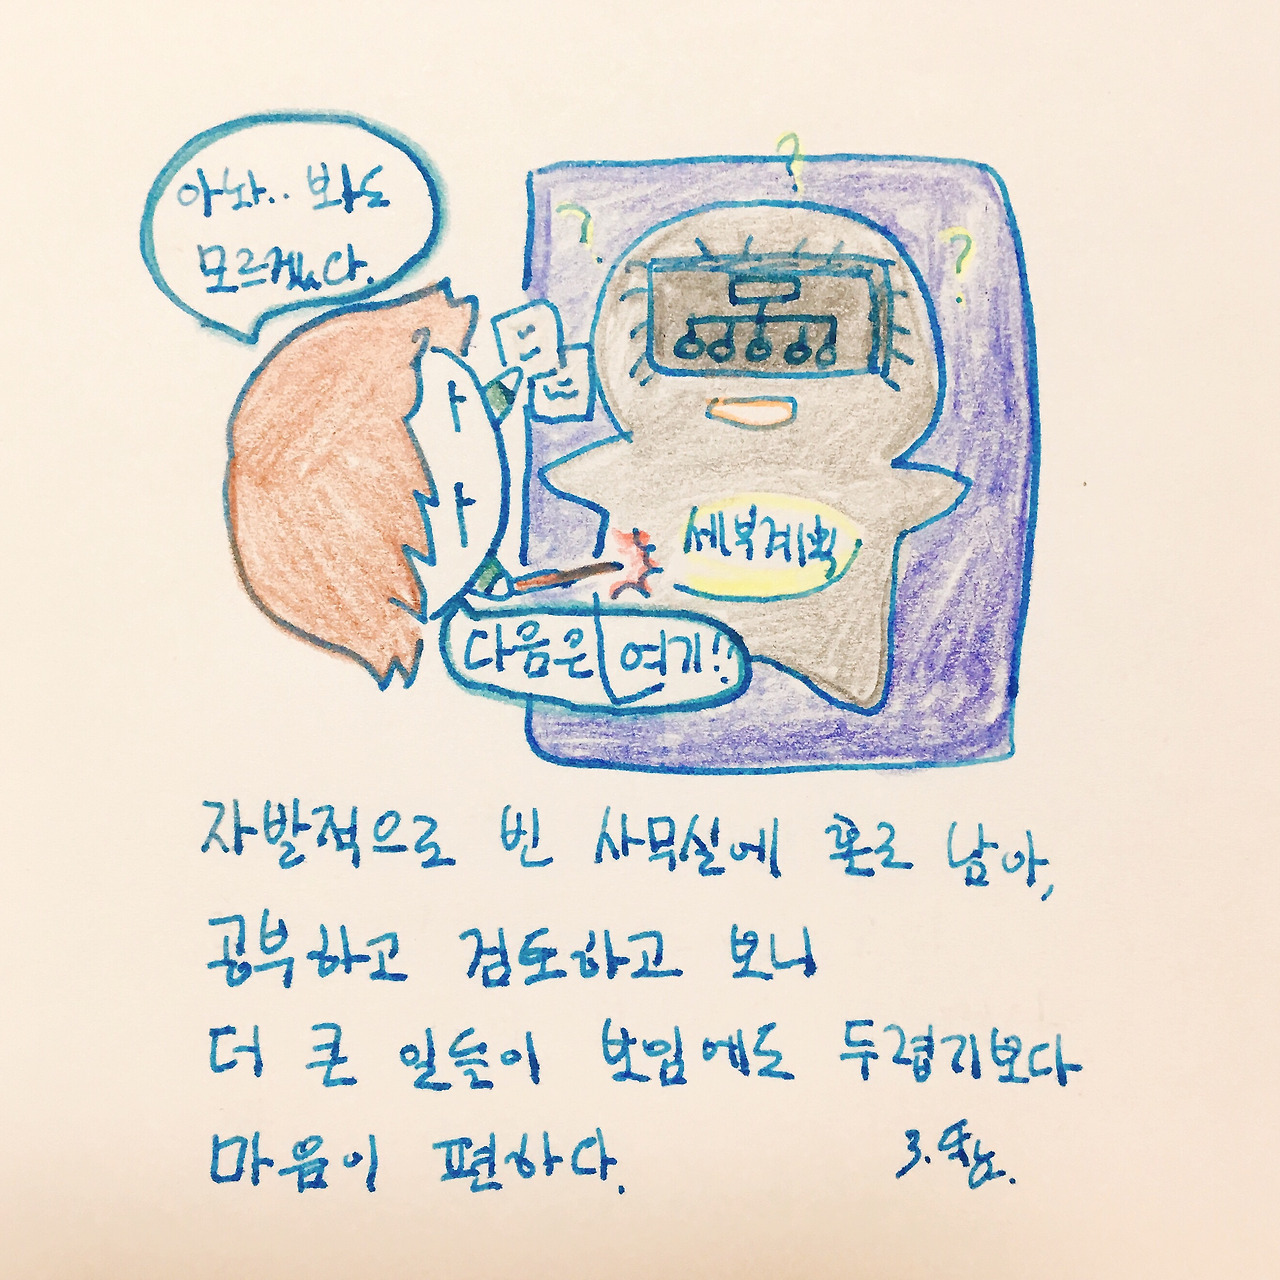 아놔.. 봐도
모르겠다.
세부계획
다음은 여기!!
자발적으로 빈 사무실에 홀로 남아,
공부하고 검토하고 보니
더 큰 일들이 보임에도 두렵기보다
마음이 편하다.
3.